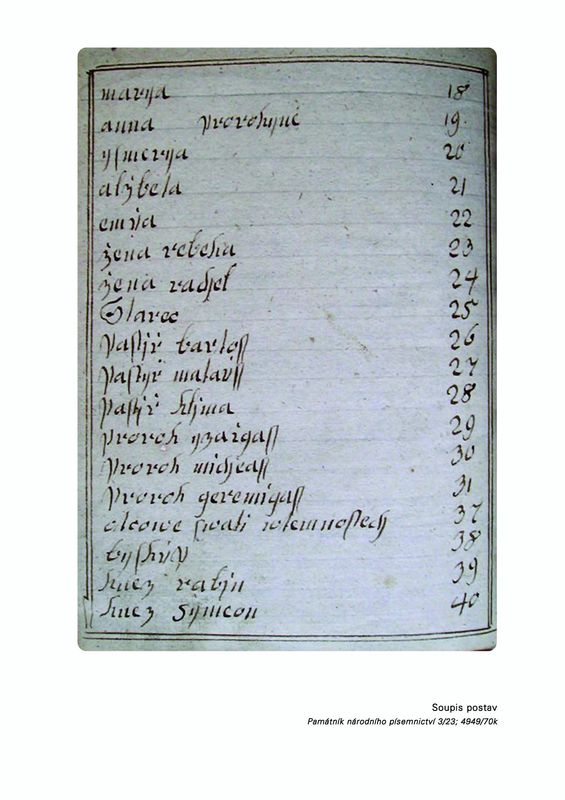 marya 18
anna prorokyně 19
ysmerya 20
alžbeta 21
emya 22
žena rebeka 23
žena rachel 24
Starec 25
pastjř bartoss 26
pastyř matauss 27
pastjř kljma 28
prorok yzaigass 29
prorok midjeass 30
prorok geremigass 31
otcowe swati w temnostech 37
byskup 38
knez rabjn 39
knez Symeon 40
Soupis postav
Památník národního písemnictví 3/23; 4949/70k